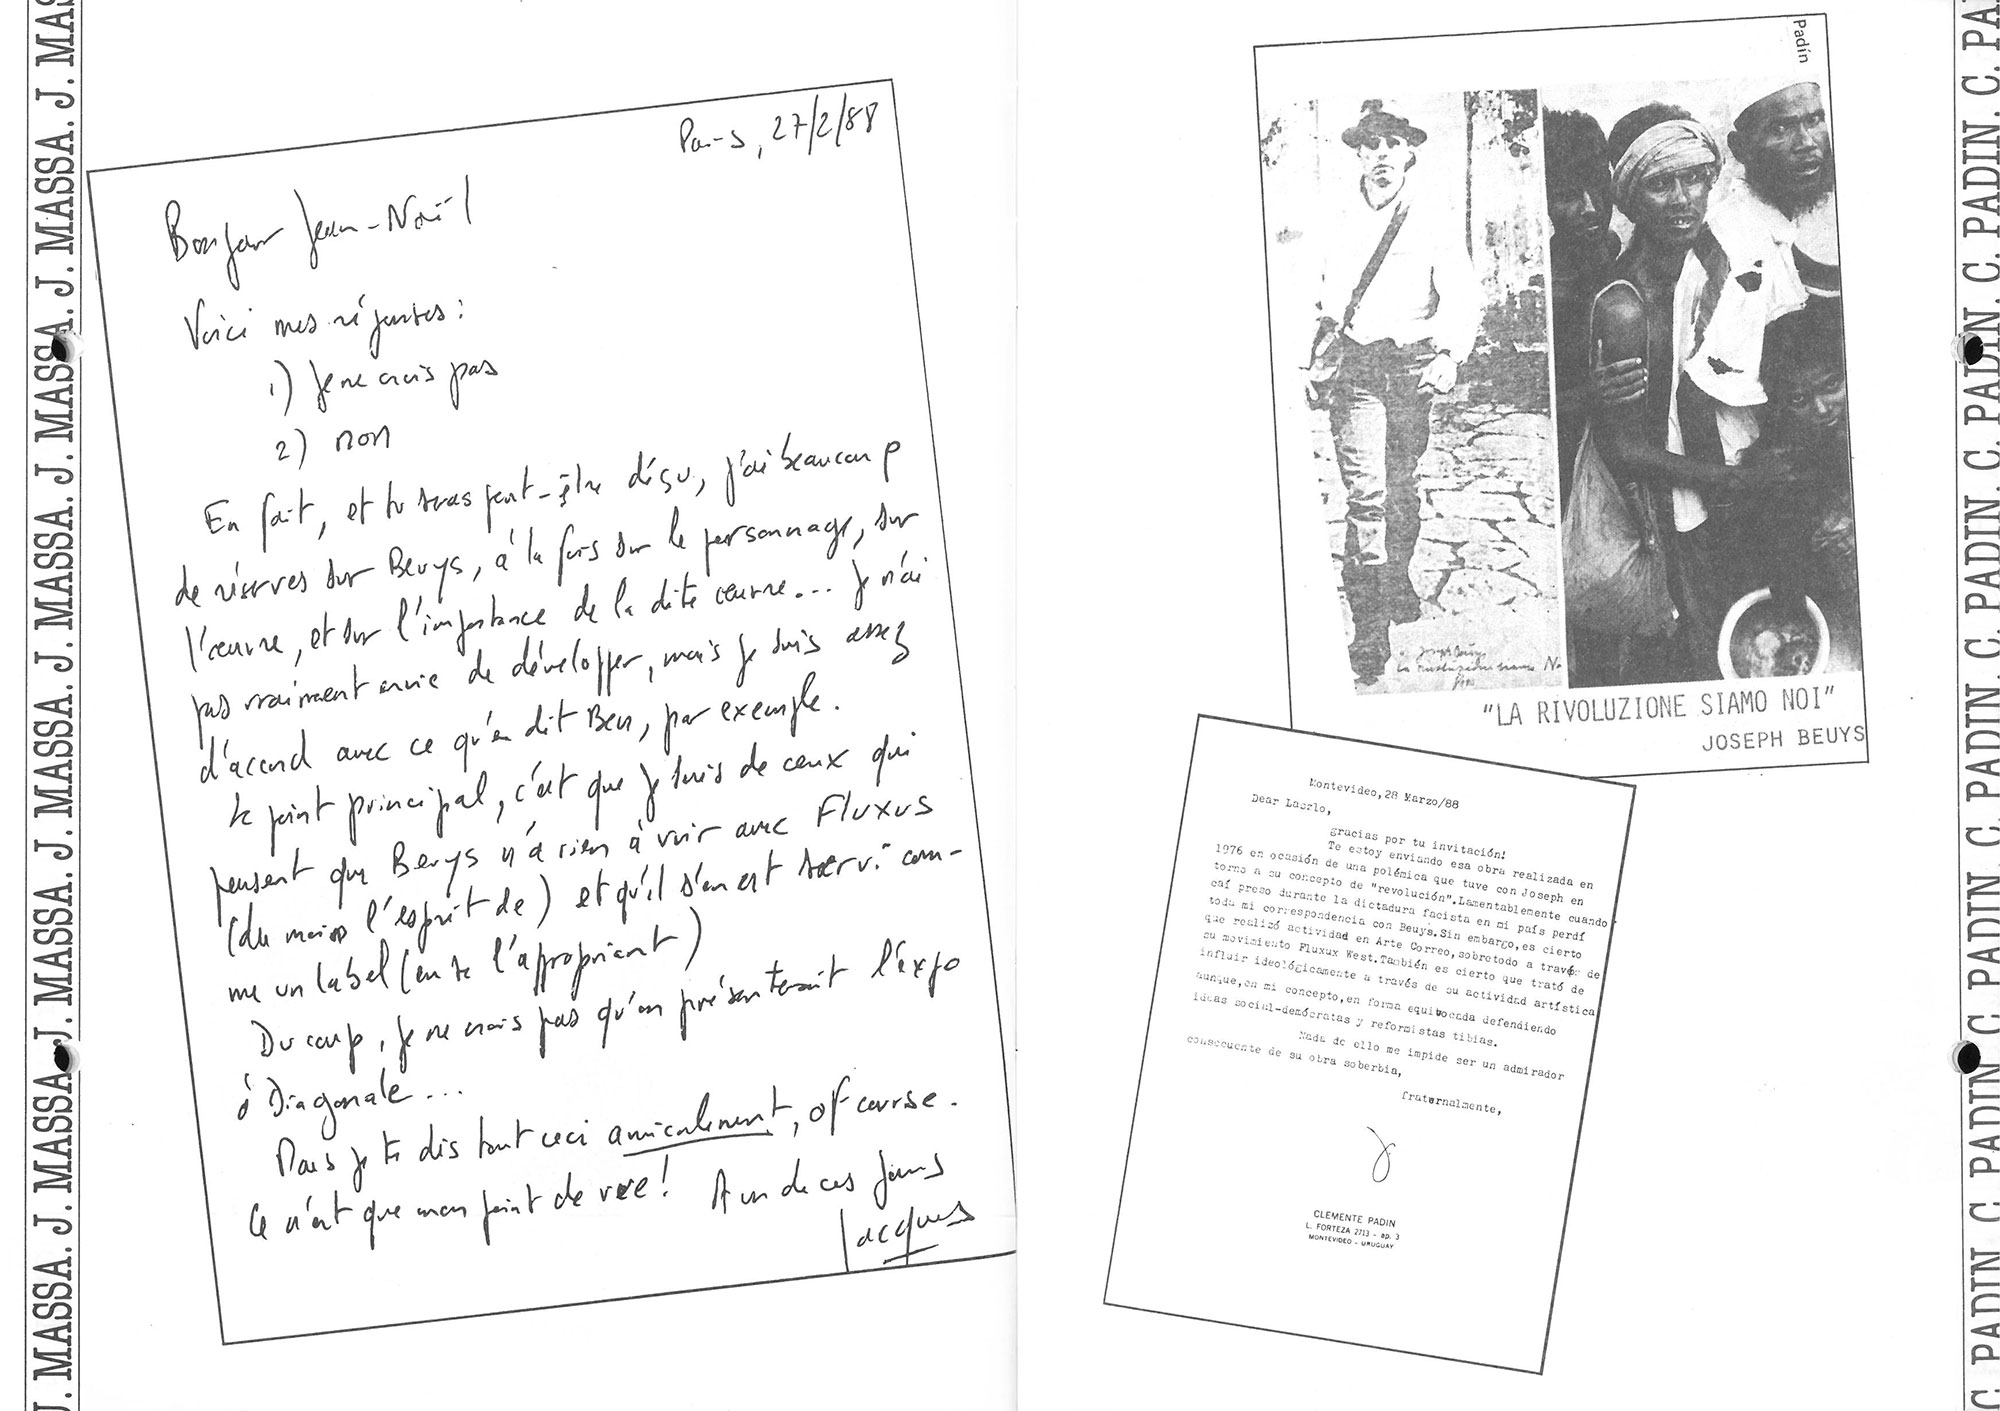 J. MASSA. J. MASSA. J. MASSA. J. MASSA. J. MASSA. J. MASSA. J. MASSA. J. MASSA. J. MASSA. J. MASSA
Paris, 27/2/88
Bonjour Jean-Noël
Voici mes réponses :
1) Je ne crois pas
2) non
En fait, et tu seras peut-être déçu, j'ai beaucoup
de réserves sur Beuys, à la fois sur le personnage, sur
l'œuvre, et sur l'importance de la dite œuvre... Je n'ai
pas vraiment envie de développer, mais je suis assez
d'accord avec ce qu'en dit Ben, par exemple.
Le point principal, c'est que je suis de ceux qui
pensent que Beuys n'a rien à voir avec Fluxus
(du moins l'esprit de) et qu'il s'en est servi com-
me un label (en se l'appropriant)
Du coup, je ne crois pas qu'on présenterait l'expo
à Diagonale...
Mais je te dis tout ceci amicalement, of course.
Ce n'est que mon point de vue! A un de ces jours
Jacques
Padín
Joseph Beuys
La rivoluzione siamo Noi
"LA RIVOLUZIONE SIAMO NOI"
JOSEPH BEUYS
Montevideo,28 Marzo/88
Dear Laorlo,
gracias por tu invitación!
Te estoy enviando esa obra realizada en
1976 en ocasión de una polémica que tuve con Joseph en
torno a su concepto de "revolución".Lamentablemente cuando
caí preso durante la dictadura facista en mi país perdí
toda mi correspondencia con Beuys.Sin embargo,es cierto
que realizó actividad en Arte Correo,sobretodo a través de
su movimiento Fluxux West.También es cierto que trató de
influir ideológicamente a través de su actividad artística
aunque,en mi concepto,en forma equivocada defendiendo
ideas social-demócratas y reformistas tibias.
Nada de ello me impide ser un admirador
consecuente de su obra soberbia,
fraternalmente,
CLEMENTE PADIN
L. FORTEZA 2713 - ap. 3
MONTEVIDEO - URUGUAY
C. PADIN. C. PADIN. C. PADIN. C. PADIN. C. PADIN. C. PADIN. C. PADIN. C. PADIN. C. PADIN. C. PA